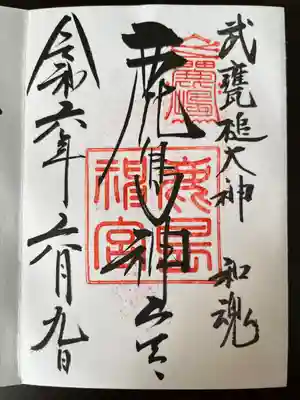 武甕槌大神 和魂
鹿島神宮
鹿島神宮
令和六年六月九日